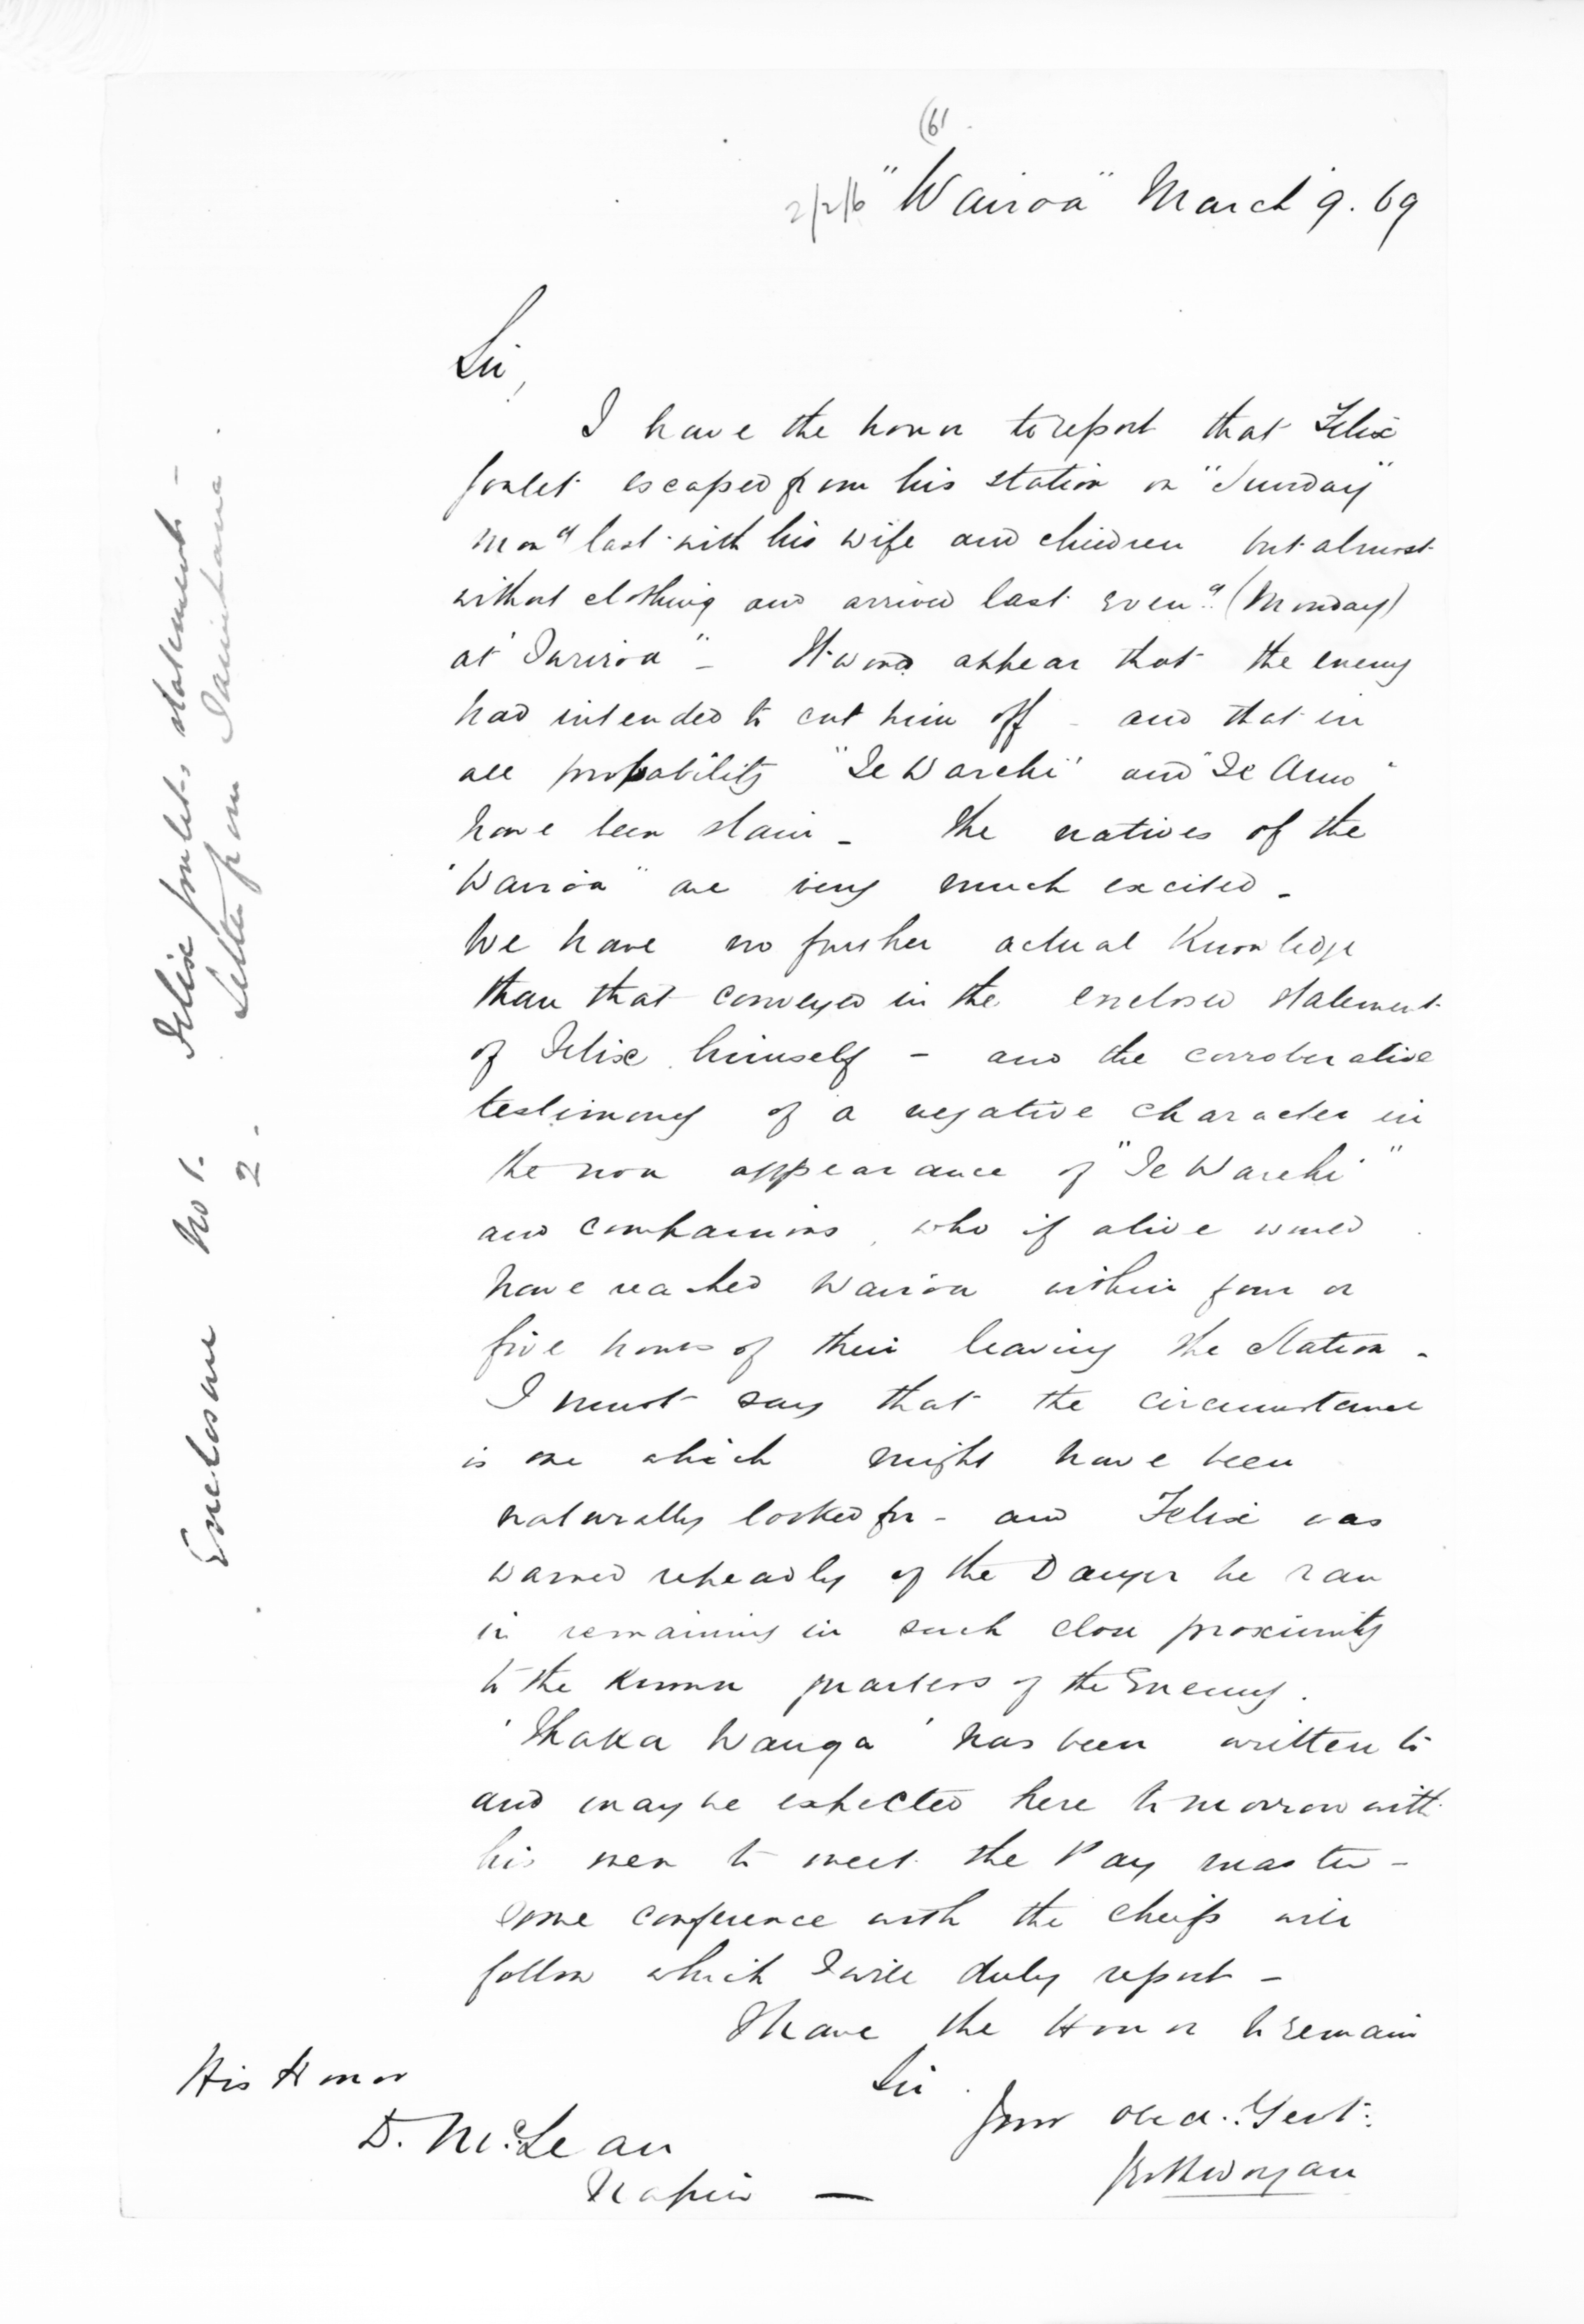 (61
2/2/6 "Wairoa" March 9. 69
Sir,
I have the honor to report that Felix
Goulet escaped from his station on "Sunday"
Morng last with his wife and children but almost
without clothing and arrived last eveng (Monday)
at "Turiroa" - It would appear that the enemy
had intended to cut him off - and that in
all probability "Te Warehi" and "Te Amo"
have been slain - The natives of the
"Wairoa" are very much excited -
We have no further actual Knowledge
than that conveyed in the enclosed statement
of Felix himself - and the corroberative
testimony of a negative character in
the non appearance of "Te Warehi"
and companions, who if alive would
have reached Wairoa within four or
five hours of their leaving the Station -
I must say that the circumstance
is one which might have been
naturally looked for - and Felix was
warned repeadly of the Danger he ran
in remaining in such close proximity
to the Known quarters of the Enemy.
'Ihaka Wanga' has been written to
and may be expected here tomorrow with
his men to meet the Pay master -
Some conference with the cheifs will
follow which I will duly report -
I have the Honor to remain
Sir
Your Obed. Servt.
His Honor
D. McLean
Napier -
Enclosure No 1. Felix Goulets statement -
2. Letter from